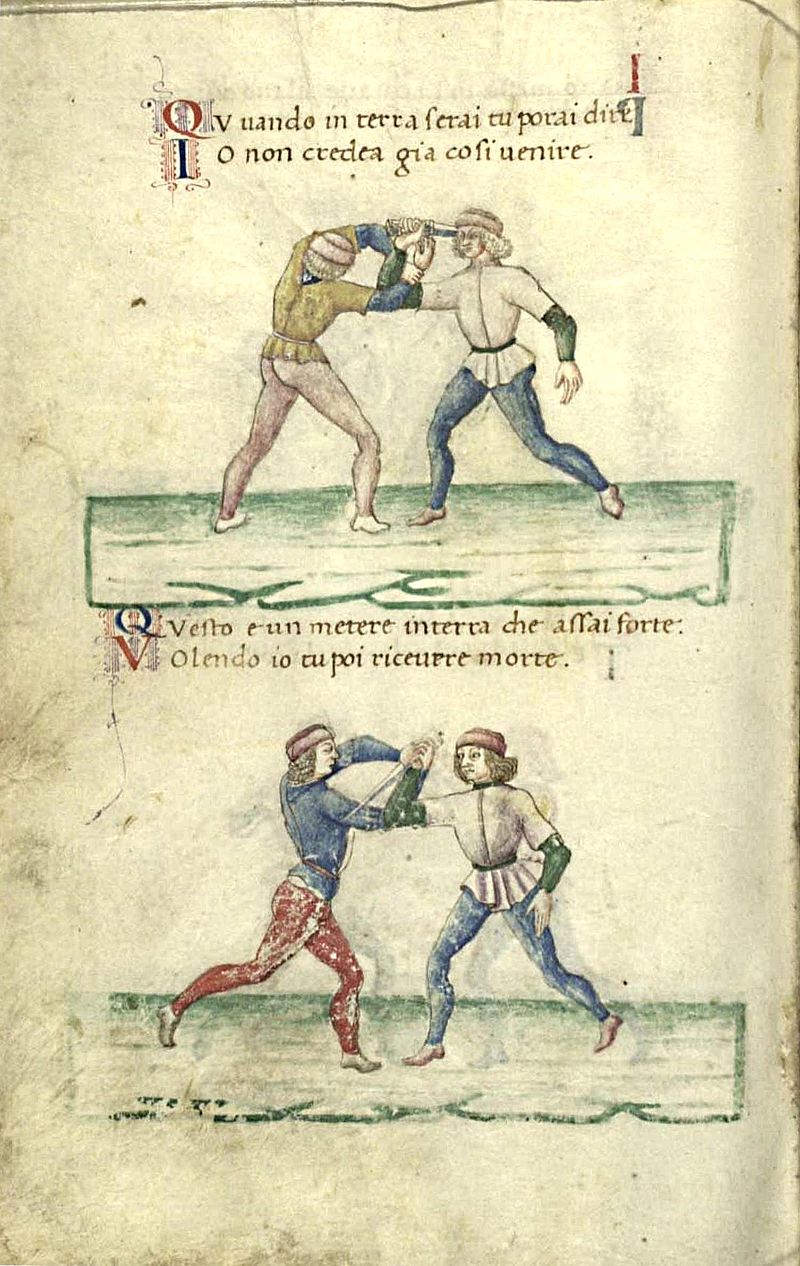 QV uando in terra serai tu porai dire
IO non credea gia cosi uenire.
QVesto e un metere in terra che assai forte.
VOlendo io tu poi riceuere morte.